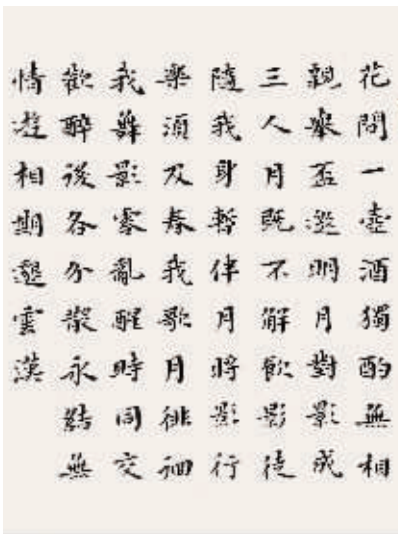 花間一壺酒獨酌無相
親舉盃邀明月對影成
三人月既不解飲影徒
隨我身暫伴月將影行
樂須及春我歌月徘徊
我舞影零亂醒時同交
歡醉後各分散永結無
情遊相期邈雲漢